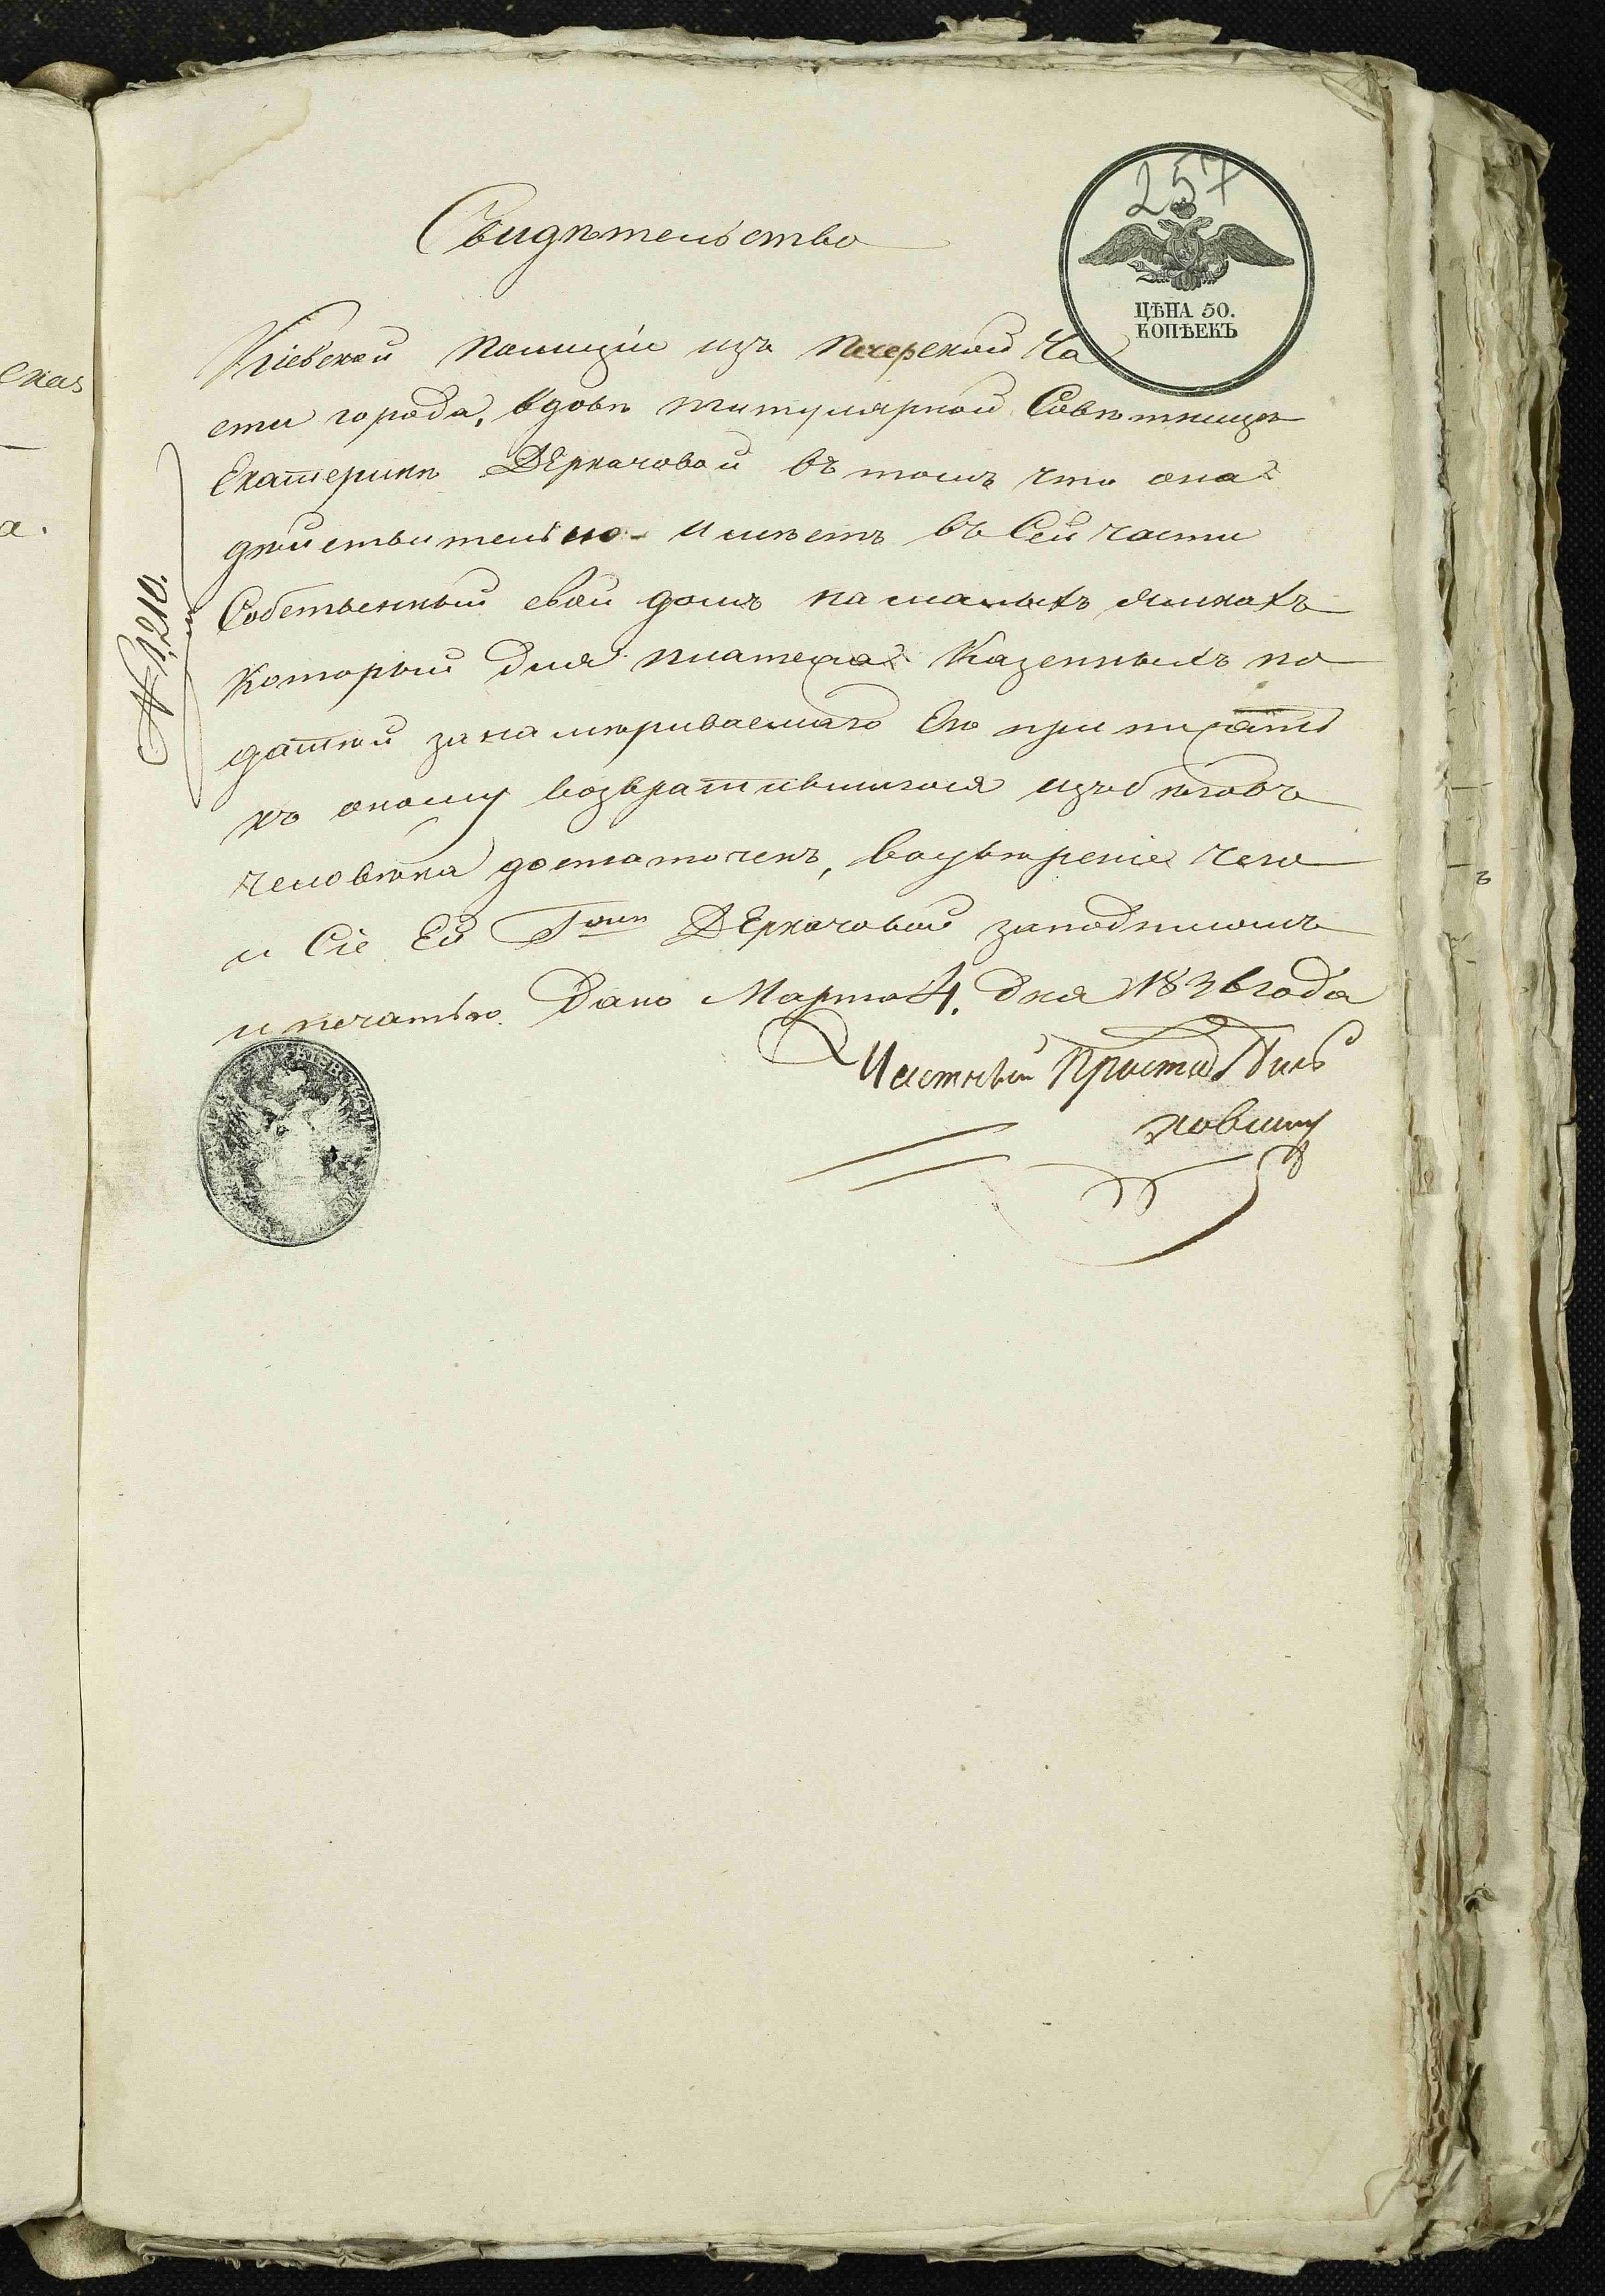 257
ЦѢНА 50.
КОПѢЕКЪ
Свидѣтельство
Кіевской полиціи изъ Печерской Ча
сти города, вдовѣ титулярной Совѣтницѣ
Екатеринѣ Деркачовой въ томъ что она
дѣйствительно имѣетъ въ Сей части
Собственный свой домъ на малыхъ ямкахъ
который для платежа Казенныхъ по
датей за намѣриваемаго Ею приписать
къ оному возвратившагося изъ бѣговъ
человѣка достаточенъ, во увѣреніе чего
и Сіе Ей Гжѣ Деркачовой за подписомъ
и печатью Дано Марта 4. дня 1836 года
Частный Приставъ
№ 1210.
скаѧ
а.